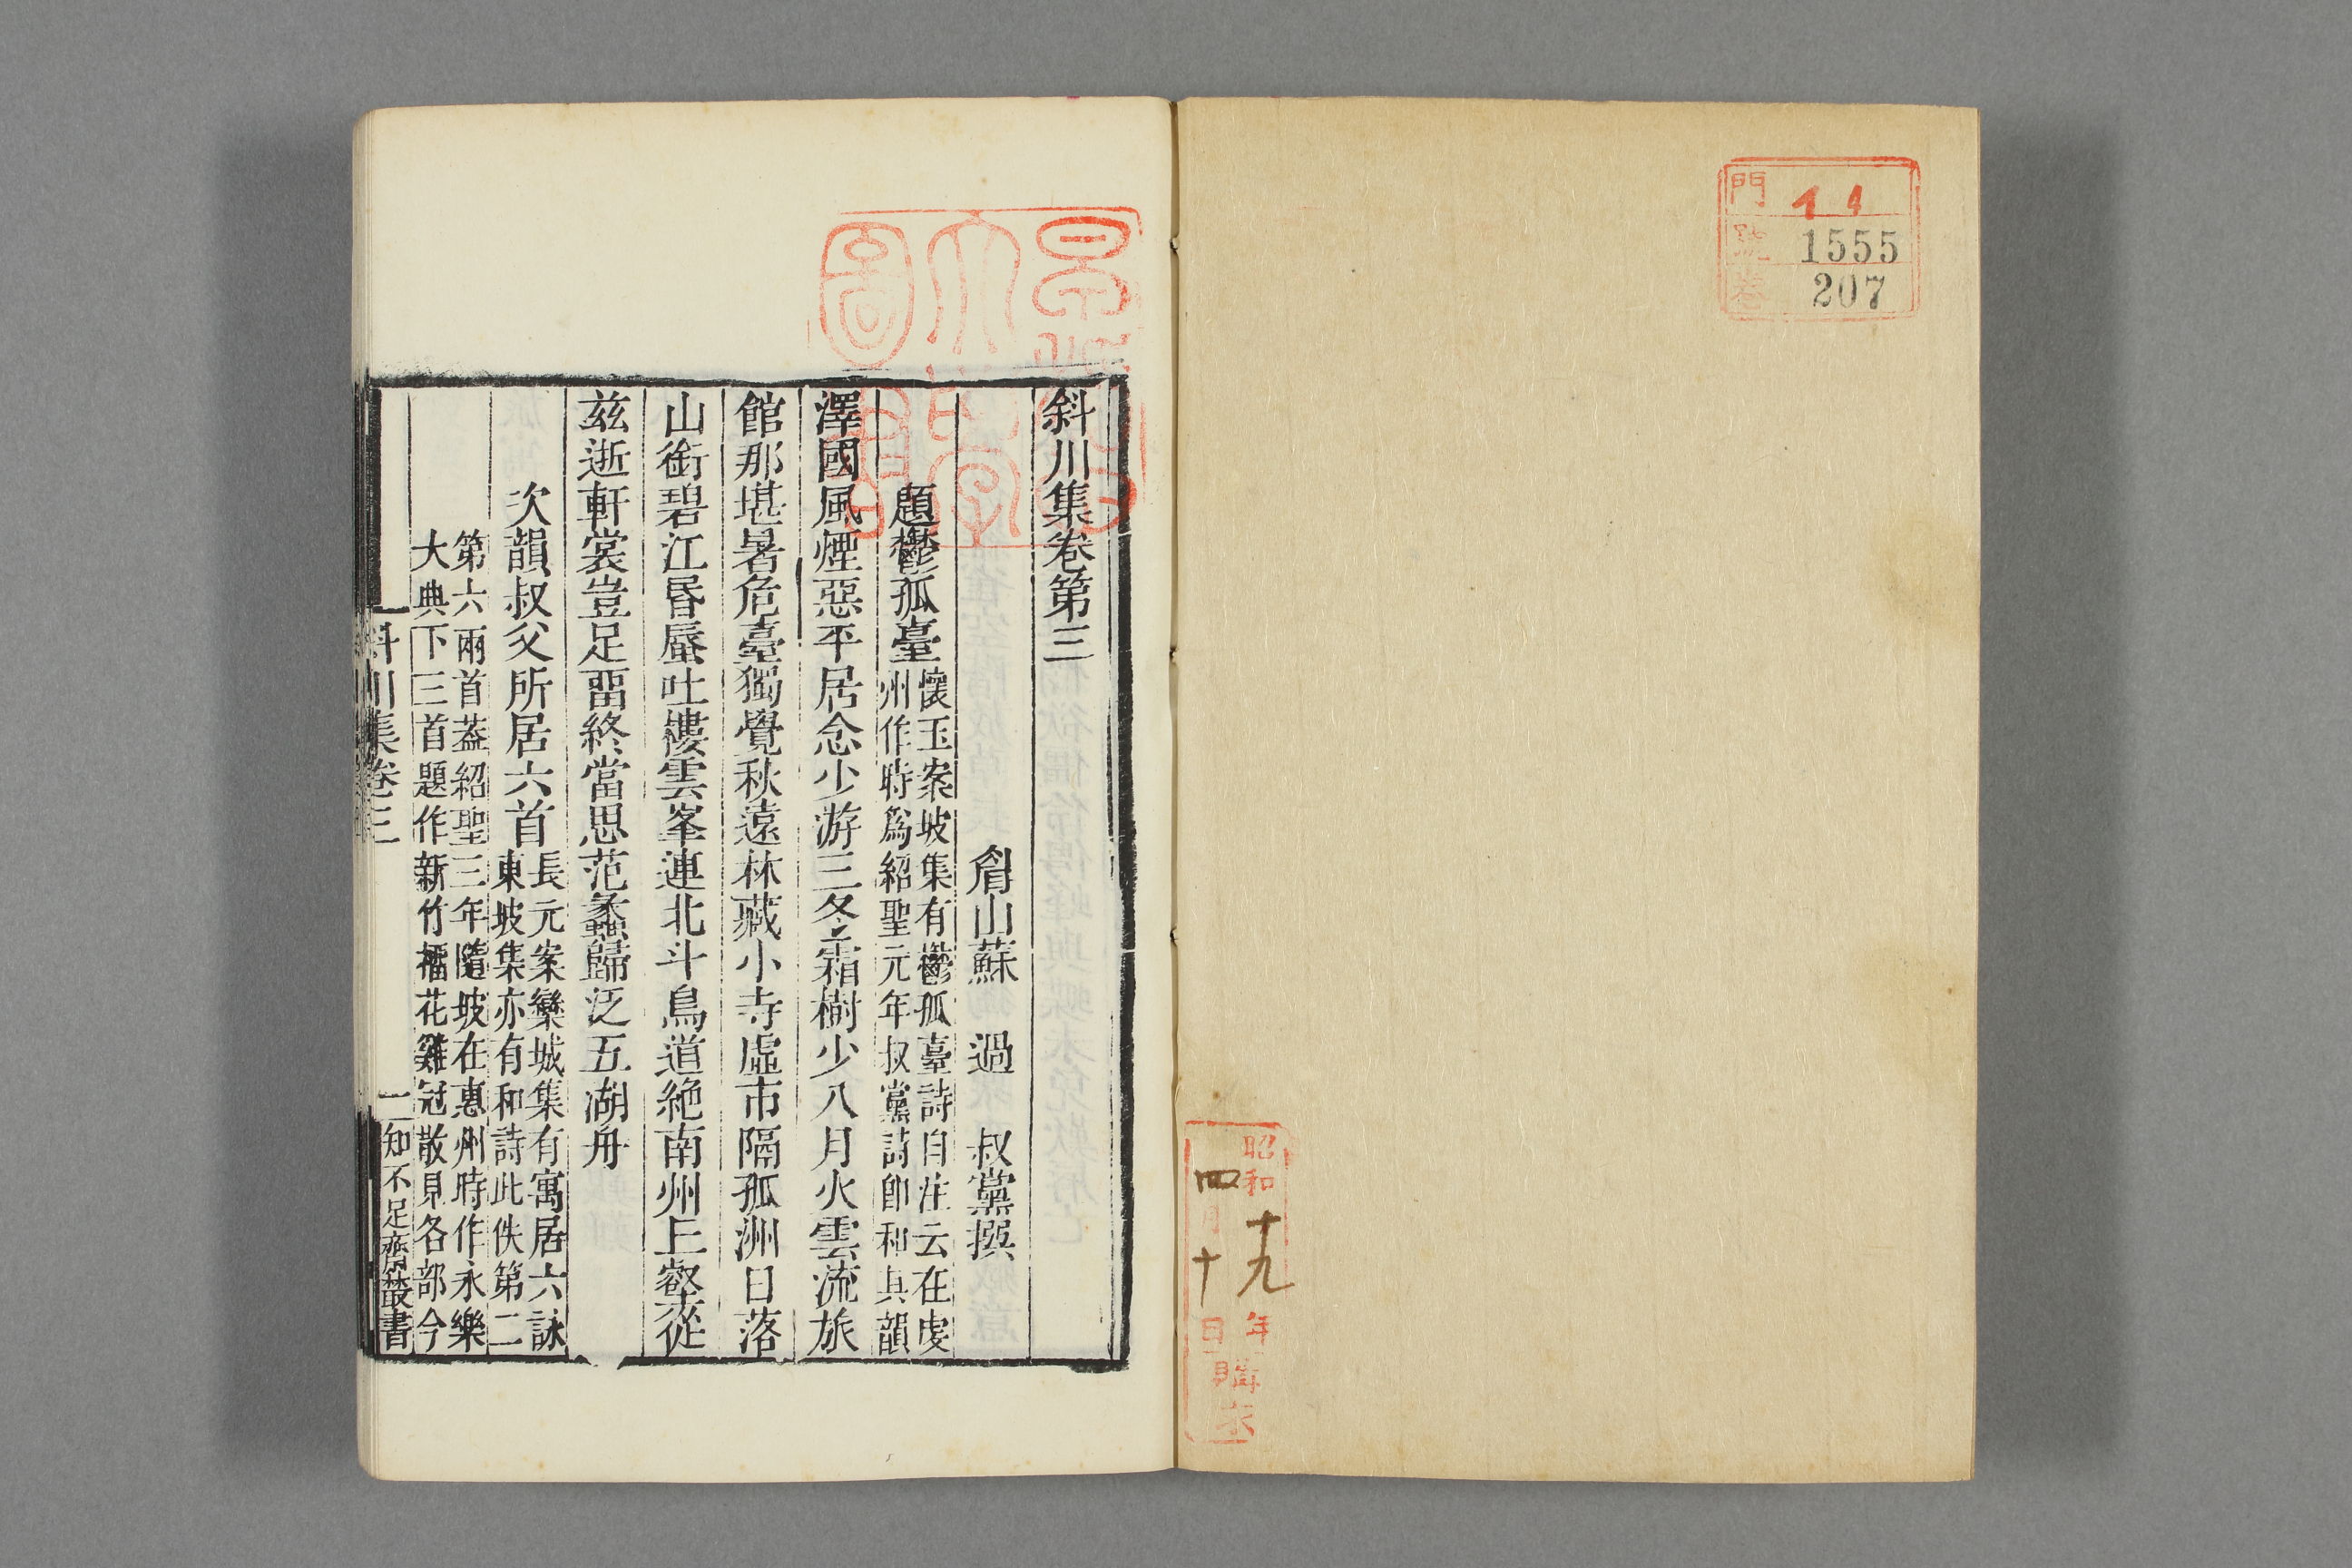 門 11
號 1555
卷 207
昭和十九年
四月十日
購求
斜川集卷第三
眉山蘇 過 叔黨撰
題鬱孤臺懷玉案坡集有鬱孤臺詩自注云在虔
州作時爲紹聖元年叔黨詩卽和其韻
澤國風煙惡平居念少游三冬霜樹少八月火雲流旅
館那堪暑危臺獨覺秋遠林藏小寺虛市隔孤洲日落
山銜碧江昏蜃吐樓雲峯連北斗鳥道絶南州上壑從
兹逝軒裳豈足畱終當思范蠡歸泛五湖舟
次韻叔父所居六首長元案欒城集有寓居六詠
東坡集亦有和詩此佚第二
第六兩首葢紹聖三年隨坡在惠州時作永樂
大典下三首題作新竹櫺花雞冠散見各部今
斜川集卷三 一 知不足齋叢書